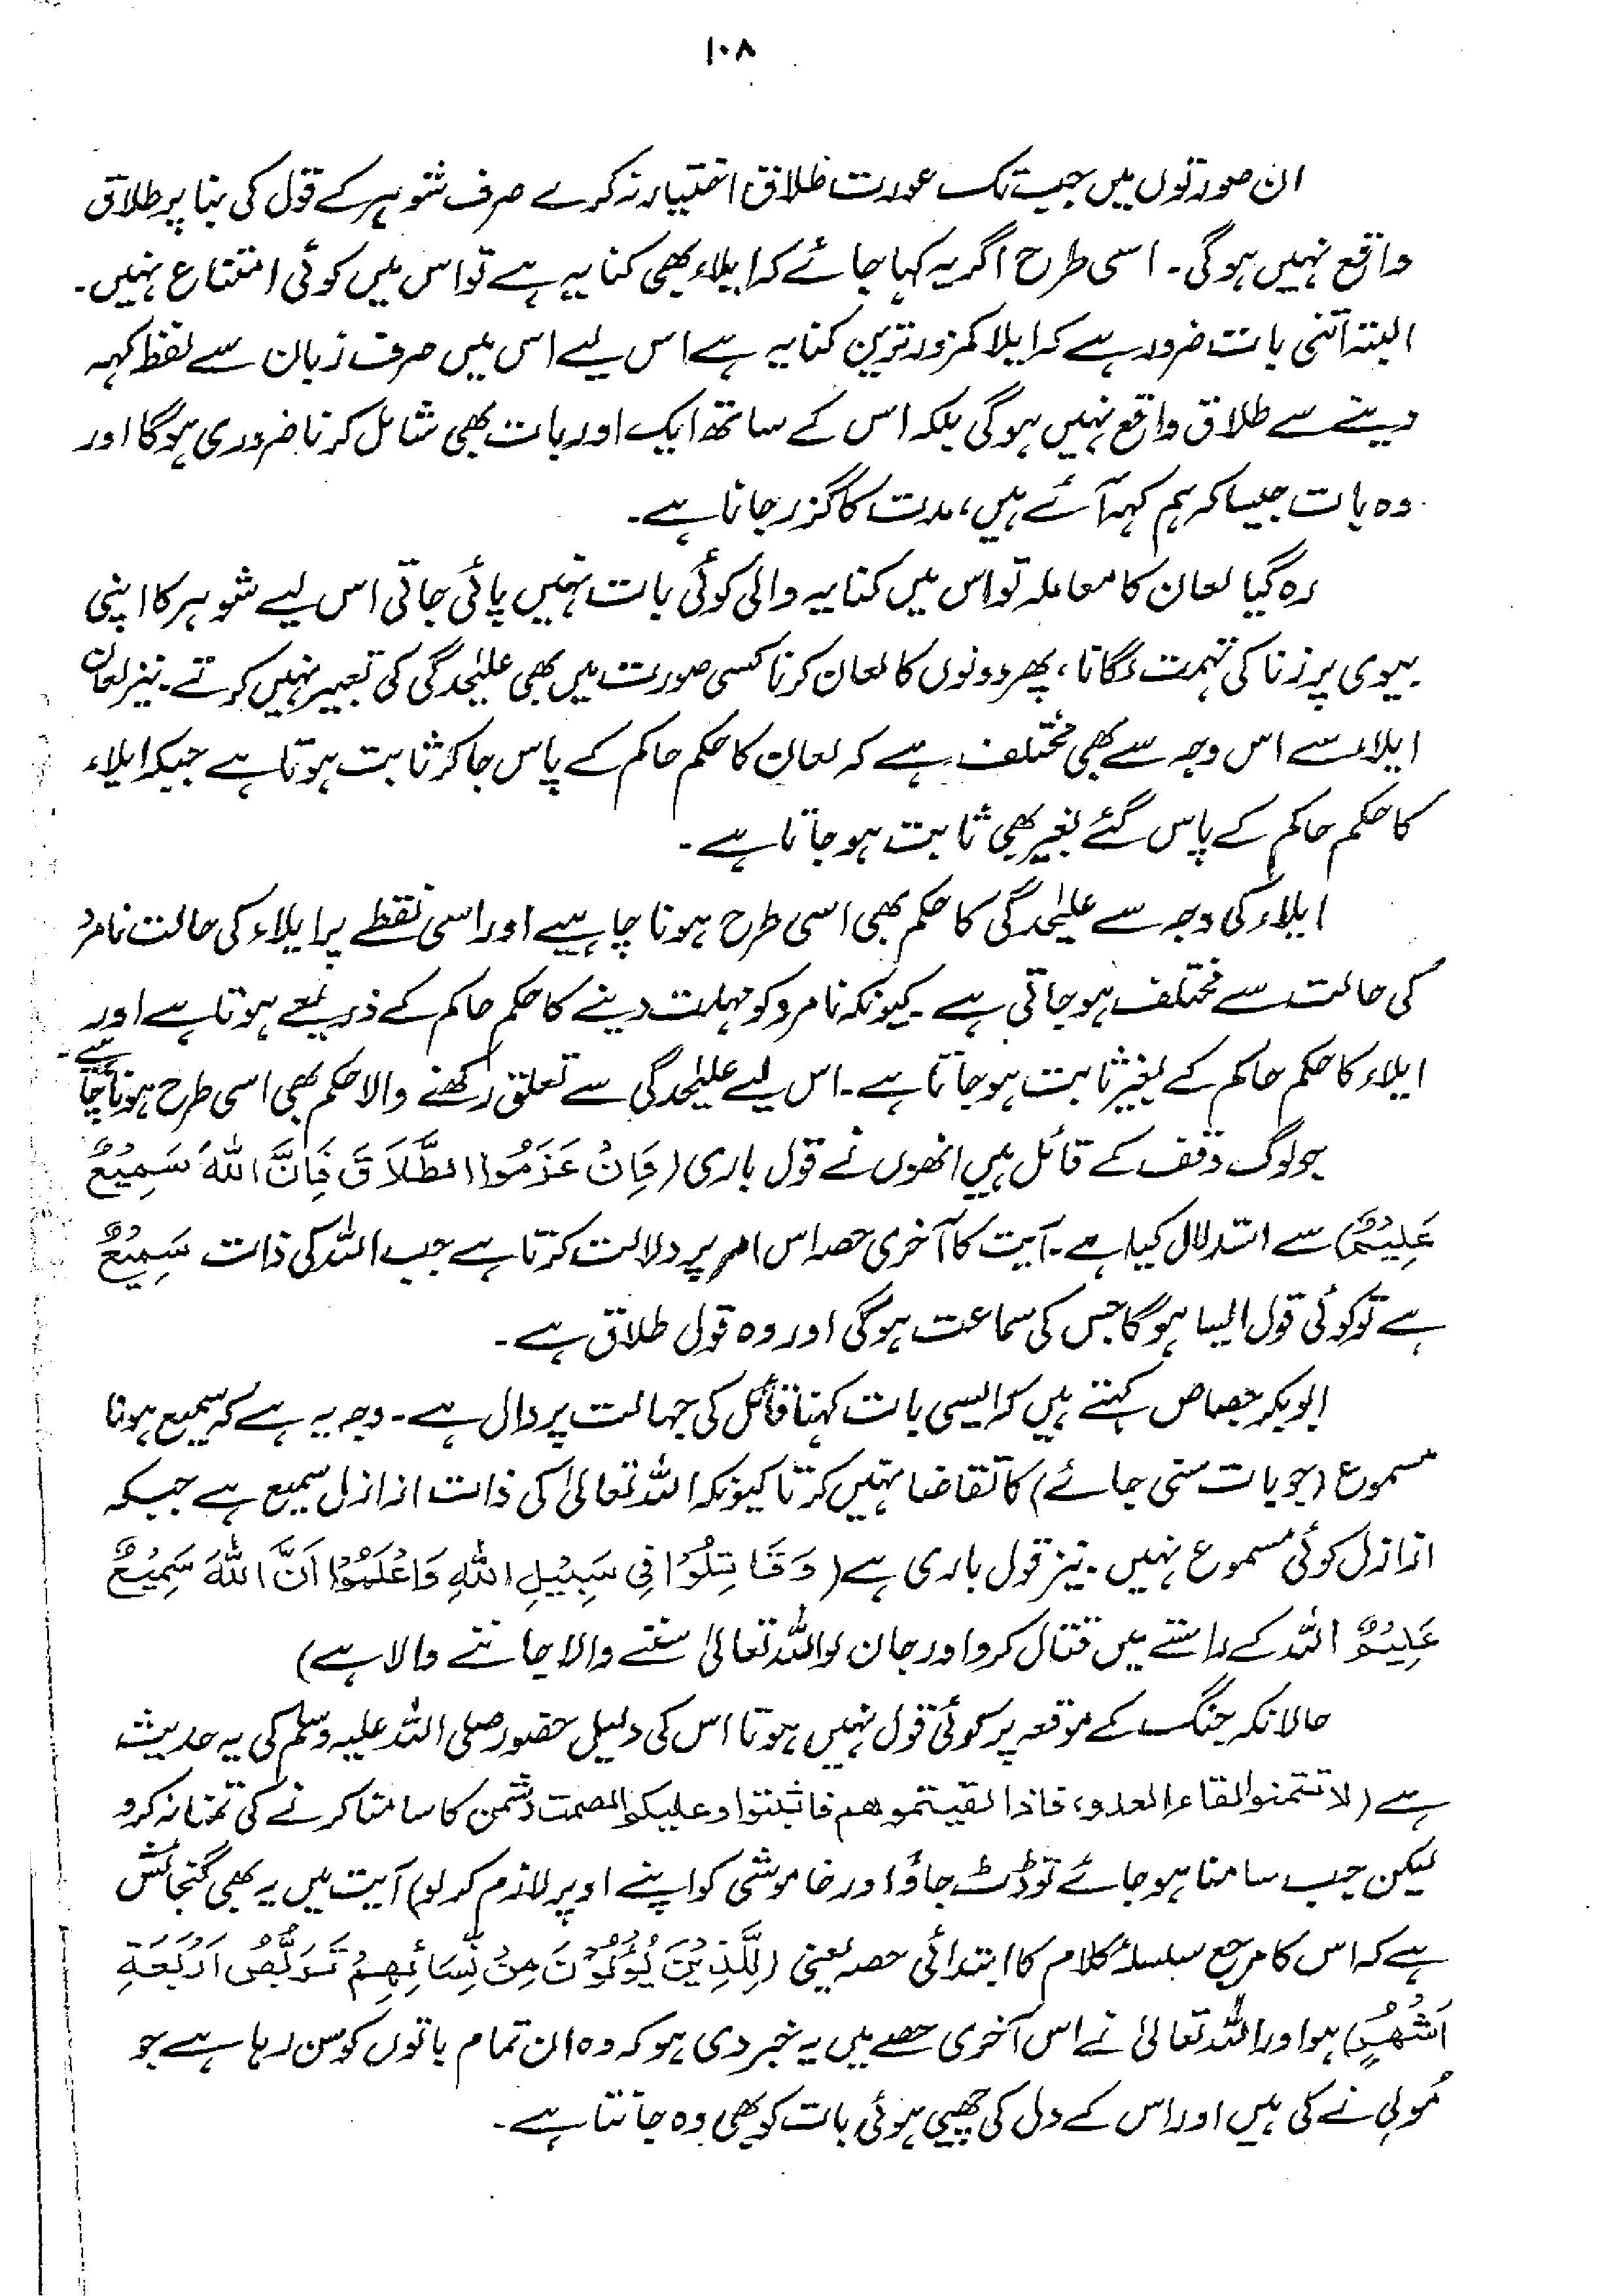 ۱۰۸
ان صورتوں میں جب تک عورت طلاق اختیار نہ کرے صرف شوہر کے قول کی بنا پر طلاق
واقع نہیں ہوگی۔ اسی طرح اگر یہ کہا جائے کہ ایلاء بھی کنایہ ہے تو اس میں کوئی امتناع نہیں۔
البتہ اتنی بات ضرور ہے کہ ایلا کمزور ترین کنایہ ہے اس لیے اس میں صرف زبان سے لفظ کہہ
دینے سے طلاق واقع نہیں ہوگی بلکہ اس کے ساتھ ایک اور بات بھی شامل کرنا ضروری ہوگا اور
وہ بات جیسا کہ ہم کہہ آئے ہیں، مدت کا گزر جانا ہے۔
رہ گیا لعان کا معاملہ تو اس میں کنایہ والی کوئی بات نہیں پائی جاتی اس لیے شوہر کا اپنی
بیوی پر زنا کی تہمت لگانا، پھر دونوں کا لعان کرنا کسی صورت میں بھی علیٰحدگی کی تعبیر نہیں کرتے۔ نیز لعان
ایلاء سے اس وجہ سے بھی مختلف ہے کہ لعان کا حکم حاکم کے پاس جا کر ثابت ہوتا ہے جبکہ ایلاء
کا حکم حاکم کے پاس گئے بغیر بھی ثابت ہو جاتا ہے۔
ایلاء کی وجہ سے علیٰحدگی کا حکم بھی اسی طرح ہونا چاہیے اور اسی نقطے پر ایلاء کی حالت نامرد
کی حالت سے مختلف ہو جاتی ہے۔ کیونکہ نامرد کو مہلت دینے کا حکم حاکم کے ذریعے ہوتا ہے اور
ایلاء کا حکم حاکم کے بغیر ثابت ہو جاتا ہے۔ اس لیے علیٰحدگی سے تعلق رکھنے والا حکم بھی اسی طرح ہونا چاہیے۔
جو لوگ وقف کے قائل ہیں انھوں نے قول باری (فَاِنْ عَزَمُوا الطَّلَاقَ فَاِنَّ اللّٰهَ سَمِيْعٌ
عَلِيْمٌ) سے استدلال کیا ہے۔ آیت کا آخری حصہ اس امر پر دلالت کرتا ہے جب اللہ کی ذات سَمِيْعٌ
ہے تو کوئی قول ایسا ہوگا جس کی سماعت ہوگی اور وہ قول طلاق ہے۔
ابوبکر جصاص کہتے ہیں کہ ایسی بات کہنا قائل کی جہالت پر دال ہے۔ وجہ یہ ہے کہ سمیع ہونا
مسموع (جو بات سنی جائے) کا تقاضا نہیں کرتا کیونکہ اللہ تعالیٰ کی ذات از ازل سمیع ہے جبکہ
از ازل کوئی مسموع نہیں۔ نیز قول باری ہے (وَقَاتِلُوْا فِیْ سَبِيْلِ اللّٰهِ وَاعْلَمُوْا اَنَّ اللّٰهَ سَمِيْعٌ
عَلِيْمٌ اللہ کے راستے میں قتال کرو اور جان لو اللہ تعالیٰ سننے والا جاننے والا ہے)
حالانکہ جنگ کے موقعہ پر کوئی قول نہیں ہوتا اس کی دلیل حضور صلی اللہ علیہ وسلم کی یہ حدیث
ہے (لا تتمنوا لقاء العدو، فاذا لقیتموهم فاثبتوا وعلیکم الصمت دشمن کا سامنا کرنے کی تمنا نہ کرو
لیکن جب سامنا ہو جائے تو ڈٹ جاؤ اور خاموشی کو اپنے اوپر لازم کر لو) آیت میں یہ بھی گنجائش
ہے کہ اس کا مرجع سلسلۂ کلام کا ابتدائی حصہ یعنی (لِلَّذِيْنَ يُؤْلُوْنَ مِنْ نِّسَائِهِمْ تَرَبُّصُ اَرْبَعَةِ
اَشْهُرٍ) ہو اور اللہ تعالیٰ نے اس آخری حصے میں یہ خبر دی ہو کہ وہ ان تمام باتوں کو سن رہا ہے جو
مُولی نے کی ہیں اور اس کے دل کی چھپی ہوئی بات کو بھی وہ جانتا ہے۔